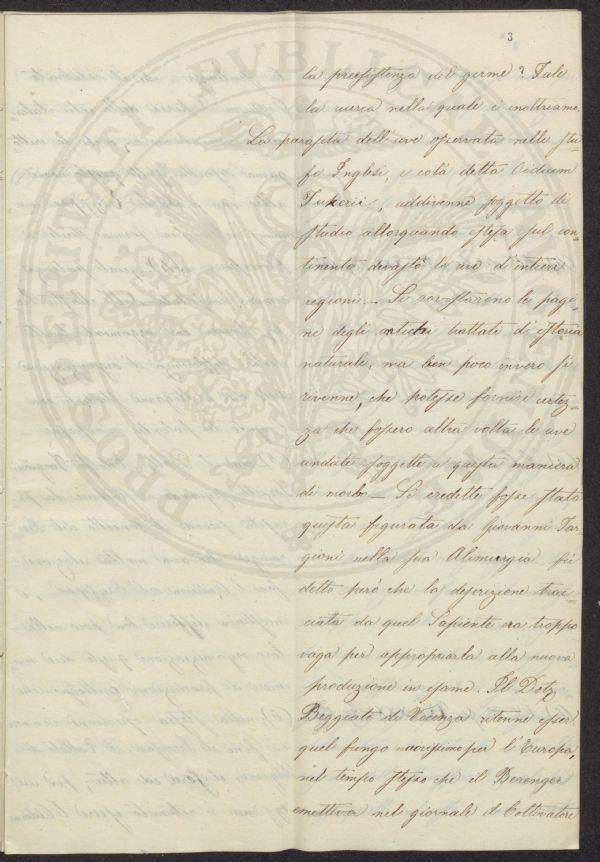 3
la preesistenza del germe? Tale
la ricerca nella quale c'inoltriamo.
La parassita dell'uve osservata nelle stu-
fe Inglesi, e colà detta Oidium
Tukerii, addivenne soggetto di
studio allorquando estesa sul con-
tinente devastò le uve d'intieri
regioni_ Si rovistarono le pagi-
ne degli antichi trattati di istoria
naturale, ma ben poco invero si
rivenne, che potesse fornire certez-
za che fossero altra volta le uve
andate soggette a questa maniera
di morbo_ Si credette fosse stata
questa figurata da Giovanni Tar-
gioni nella sua Alimurgia fu
detto però che la descrizione trac-
ciata da quel Sapiente era troppo
vaga per appropriarla alla nuova
produzione in esame. Il Dott.
Beggiato di Vicenza ritenne esser
quel fungo nuovissimo per l'Europa,
nel tempo stesso che il Berenger
emetteva nel giornale il Coltivatore
PROSPERITATI PVBLICAE